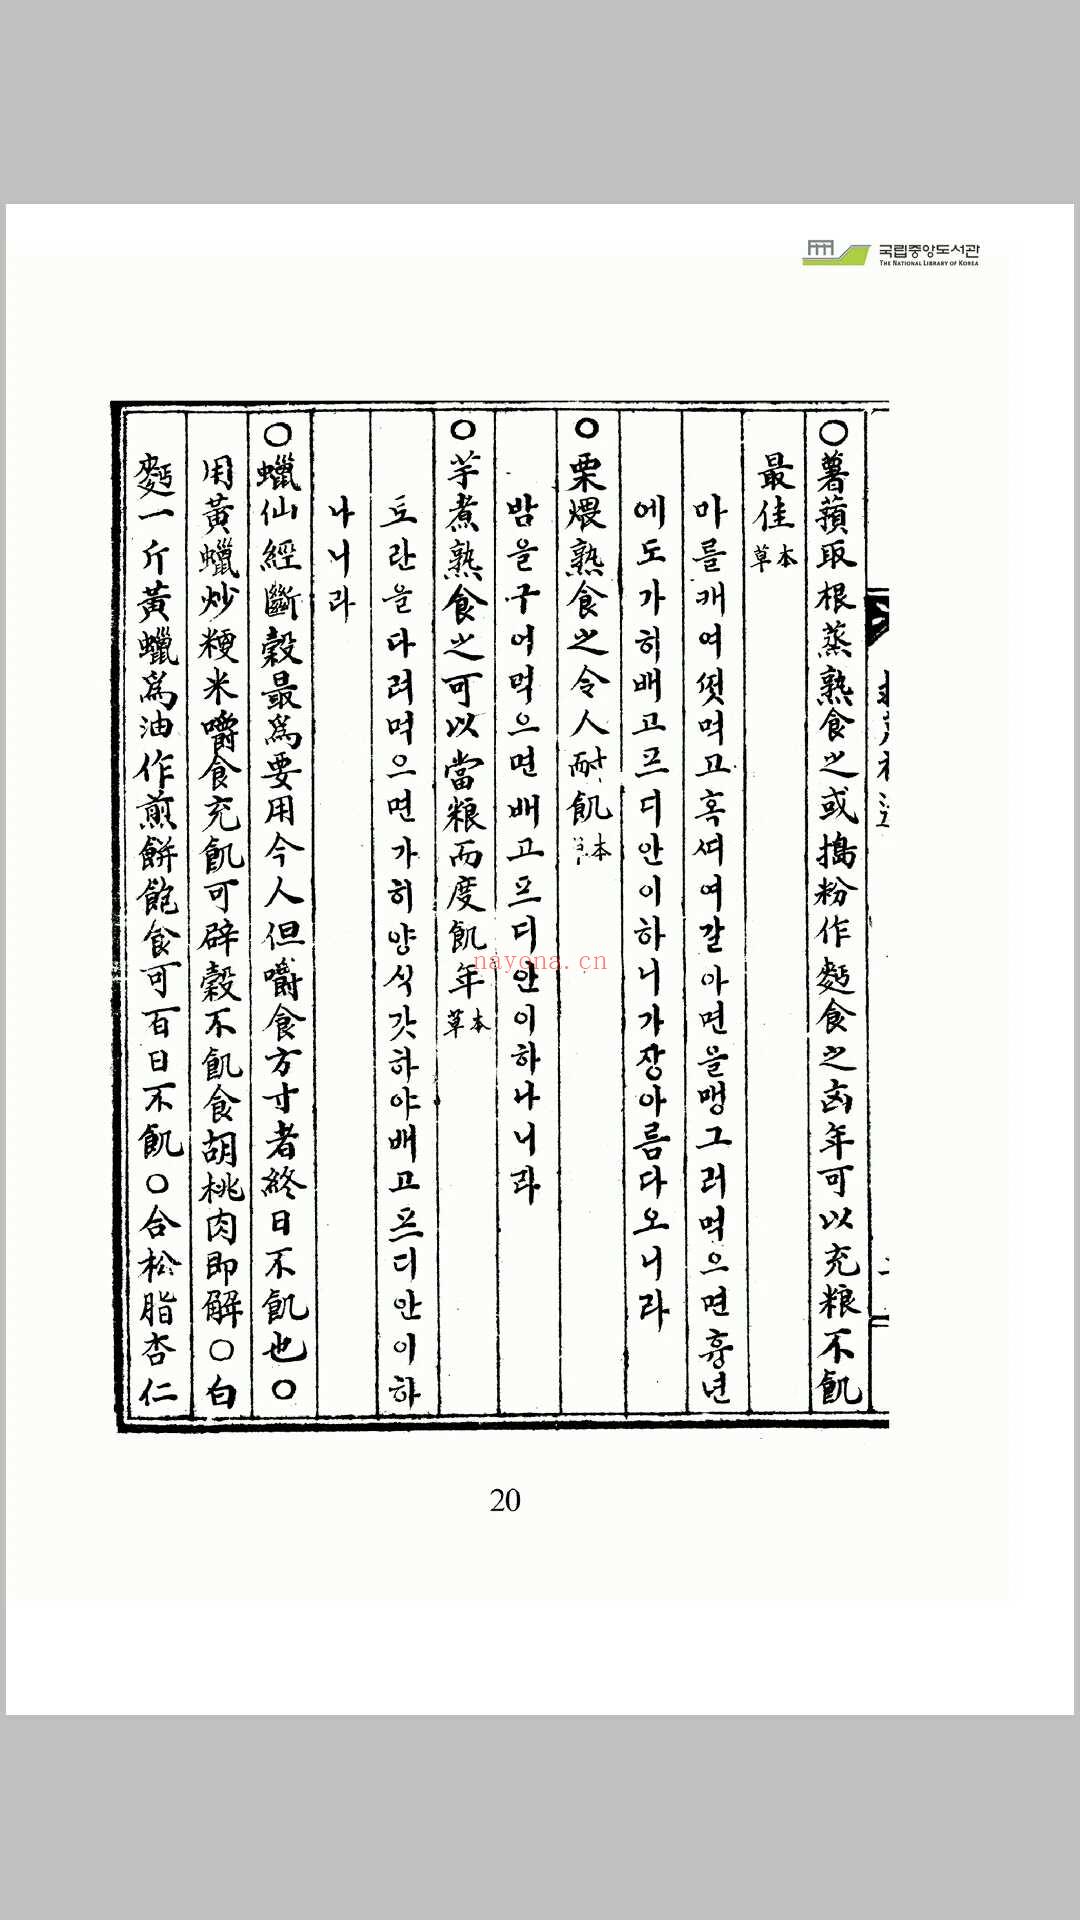 국립중앙도서관
THE NATIONAL LIBRARY OF KOREA
○薯蕷取根蒸熟食之或搗粉作麪食之凶年可以充粮不飢
最佳本草
마를캐여쪗먹고혹쪄여갈아면을맹그러먹으면흉년
에도가히배고프디안이하니가장아름다오니라
○栗煨熟食之令人耐飢本草
밤을구어먹으면배고프디안이하나니라
○芋煮熟食之可以當粮而度飢年本草
토란을다려먹으면가히양식갓하야배고프디안이하
나니라
○蠟仙經斷穀最爲要用今人但嚼食方寸者終日不飢也○
用黃蠟炒粳米嚼食充飢可辟穀不飢食胡桃肉即解○白
麪一斤黃蠟爲油作煎餠飽食可百日不飢○合松脂杏仁
nayona.cn
20